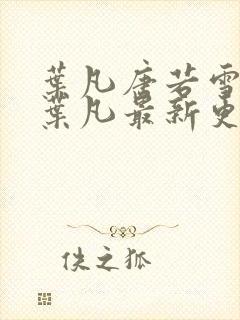 葉凡唐若雪
葉凡最新更
佚之狐